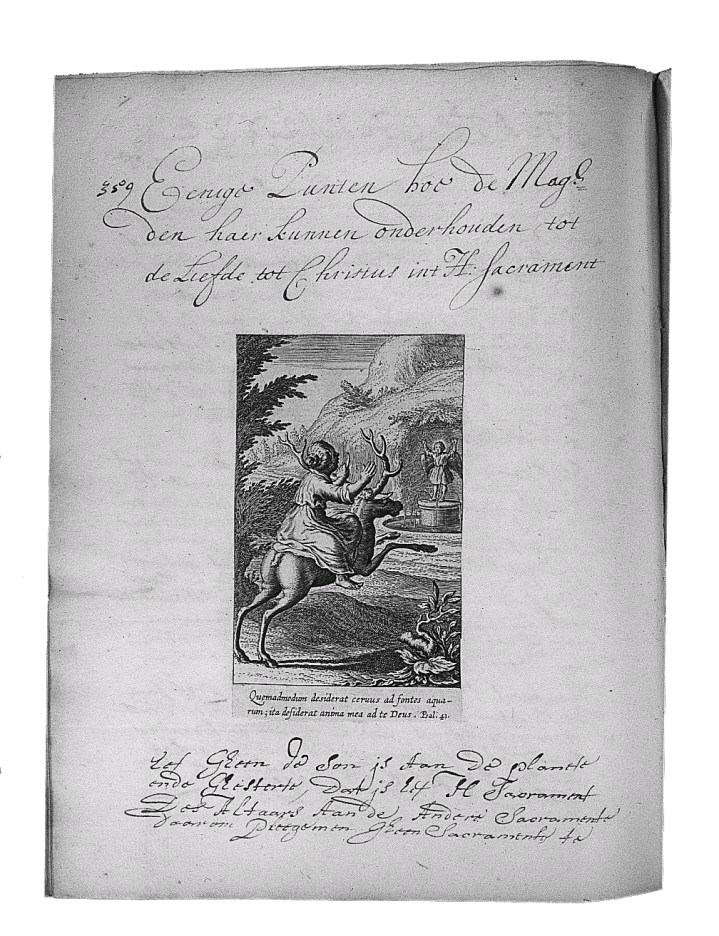 Eenige Punten hoe de Mag=
den haer kunnen onderhouden tot
de Liefde tot Christus int H: Sacrament
Quemadmodum desiderat ceruus ad fontes aqua-
rum; ita desiderat anima mea ad te Deus. Psal: 41.
Het Gheen de Son is Aan De planete
ende Gesternte Dat is het H Sacrament
Des Altaars Aan de Andere Sacramente
daarom Gheen Sacramente